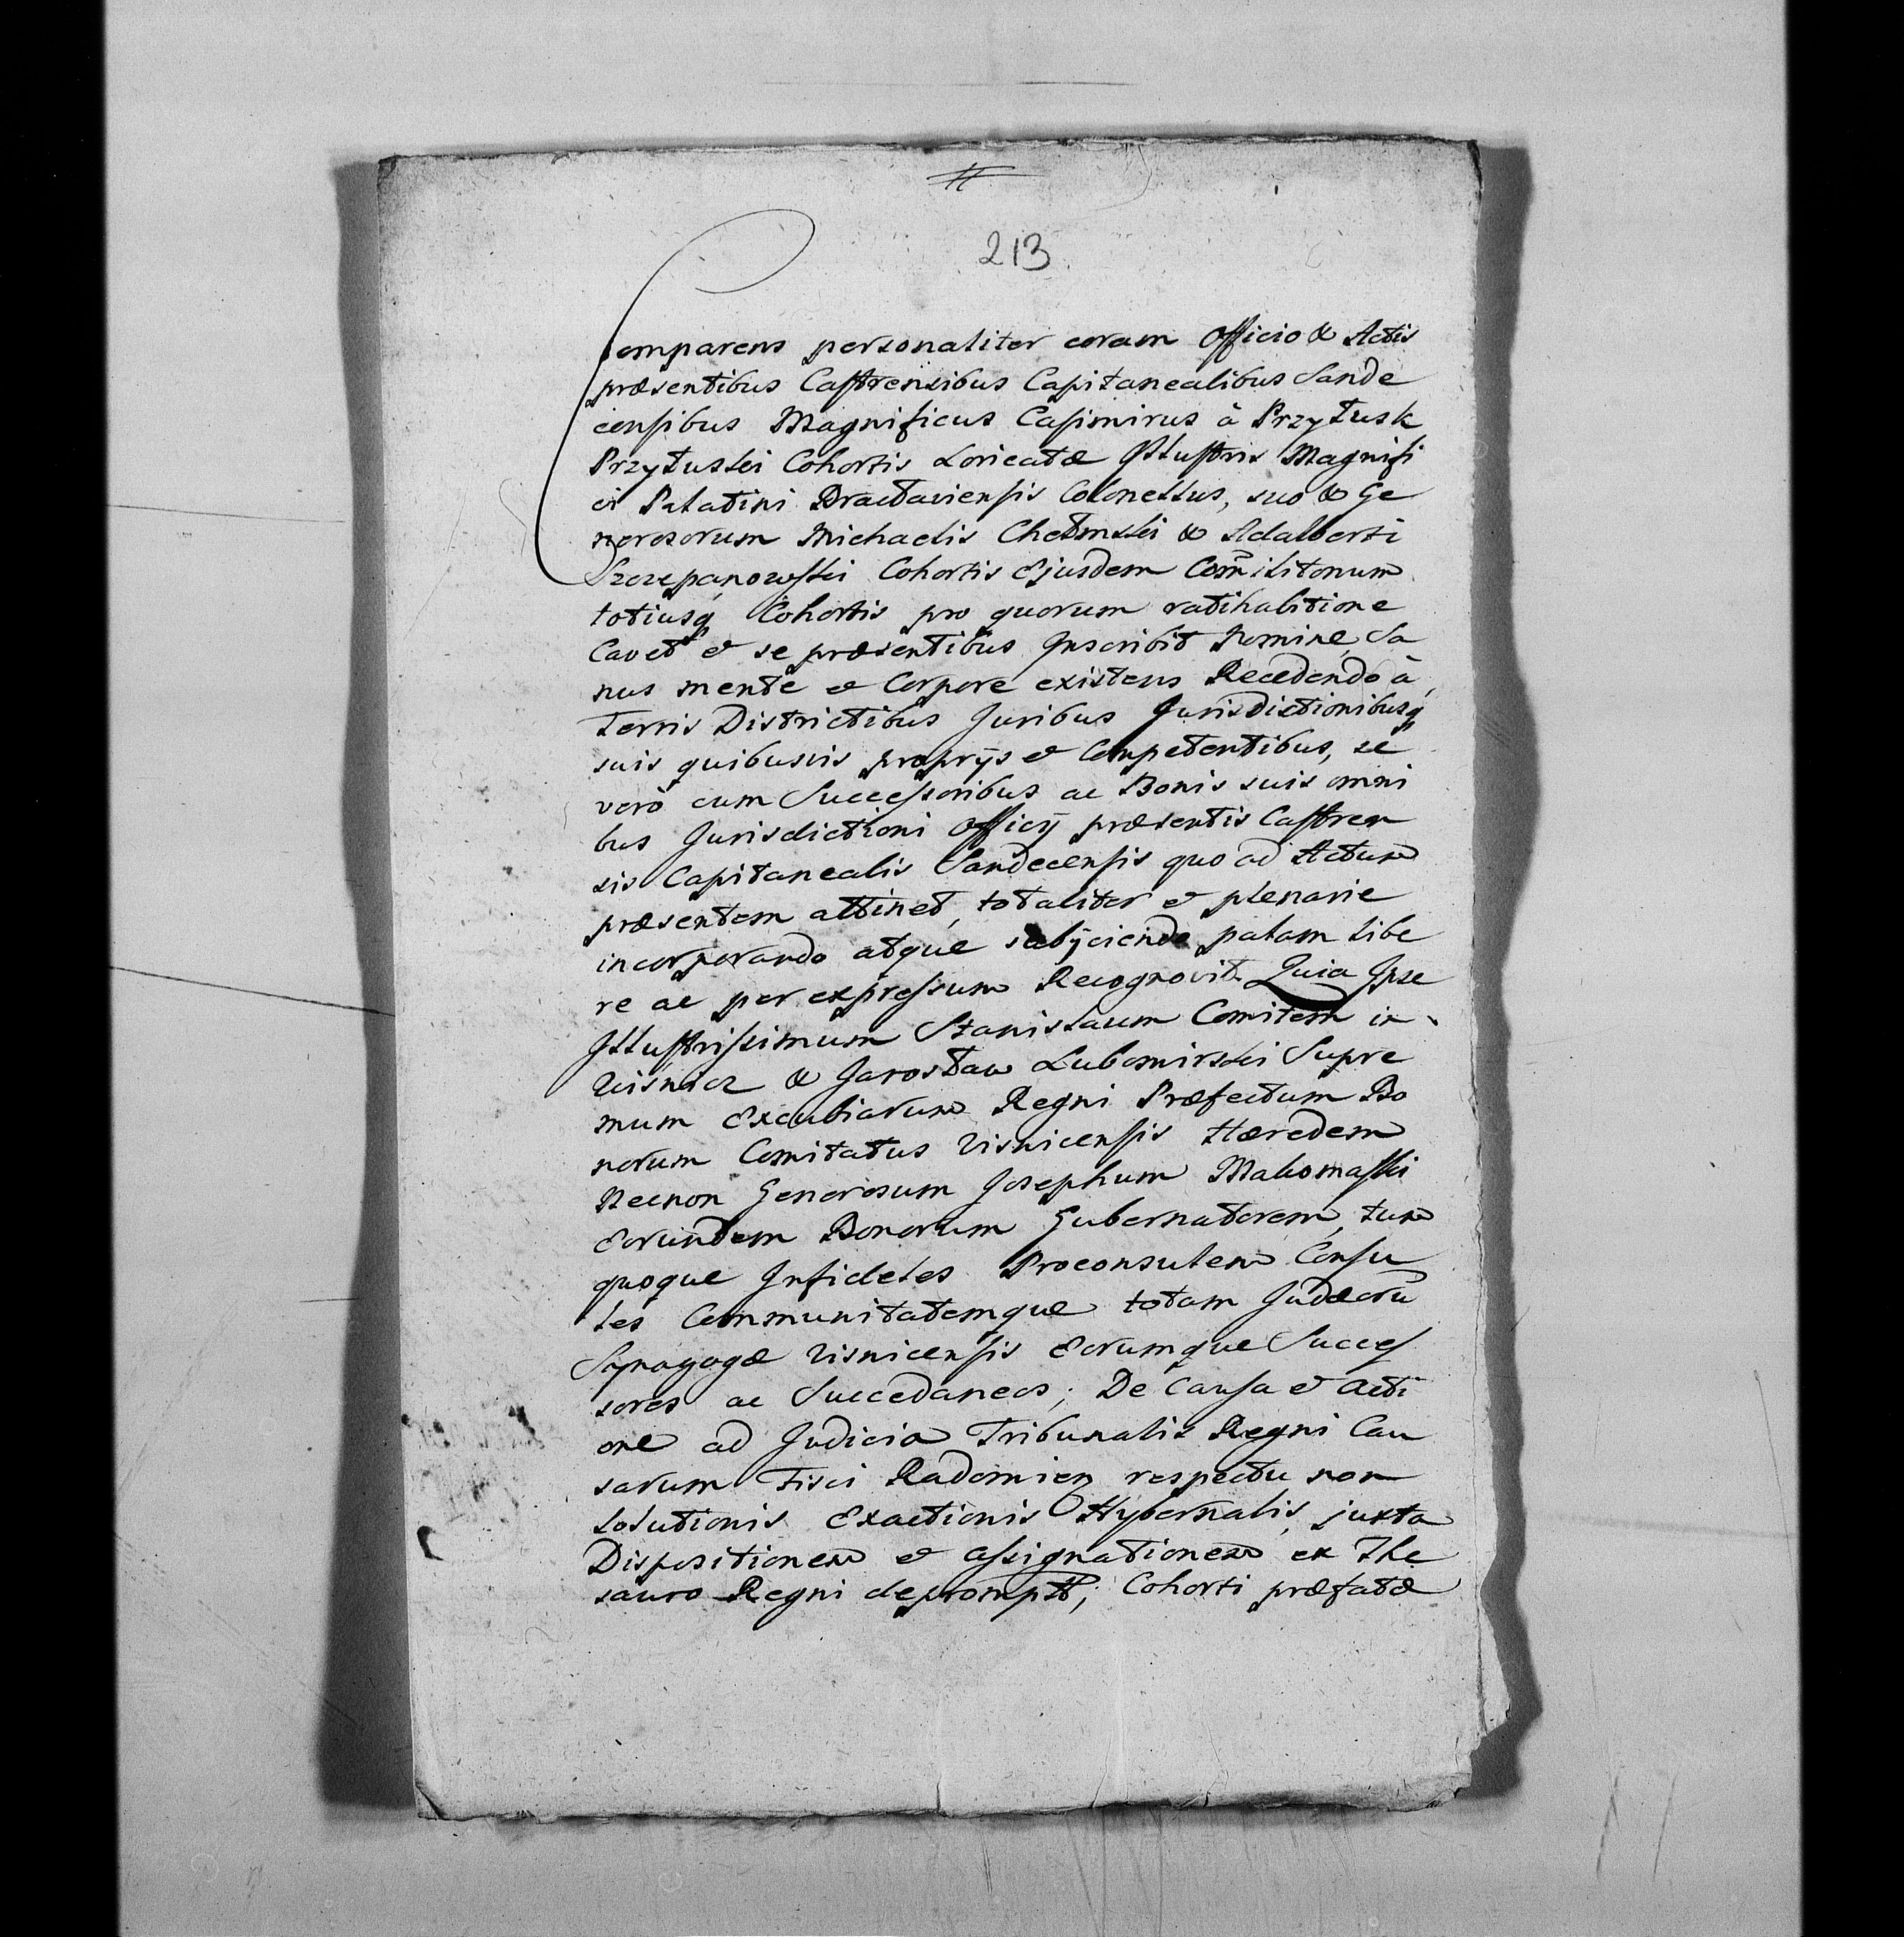 213
Comparens personaliter coram Officio & Actis
præsentibus Castrensibus Capitanealibus Sande
censibus Magnificus Casimirus à Przyłusk
Przyłuski Cohortis Loricatæ Illustris Magnifi
ci Palatini Bracłaviensis Colonellus, suo & Ge
nerosorum Michaelis Chełmski & Adalberti
Szczepanowski Cohortis Ejusdem Com̃ilitonum
totiusq Cohortis pro quorum ratihabitione
Cavet et se præsentibus Inscribit Nomine, Sa
nus mente et Corpore existens Recedendo à
Terris Districtibus Juribus Jurisdictionibusq
suis quibusvis proprijs et Competentibus, se
verò cum Successoribus ac Bonis suis omni
bus Jurisdictioni Officij præsentis Castren
sis Capitanealis Sandecensis quo ad Actum
præsentem attinet, totaliter et plenarie
incorporando atque subijciendo palam libe
re ac per expressum Recognovit. Quia Ipse
Illustrissimum Stanislaum Comitem in
Wisnicz & Jarosław Lubomirski Supre
mum Excubiarum Regni Præfectum Bo
norum Comitatus Visnicensis Hæredem
Necnon Generosum Josephum Makomaski
Eorundem Bonorum Gubernatorem, tum
quoque Infideles Proconsulem Consu
les Communitatemque totam Judæorũ
Synagogæ Visnicensis Eorumque Succes
sores ac Succedaneos; De Causa et Acti
one ad Judicia Tribunalis Regni Cau
sarum Fisci Radomien respectu non
solutionis Exactionis Hybernalis, juxta
Dispositionem et Assignationem ex The
sauro Regni deprompt; Cohorti præfatæ